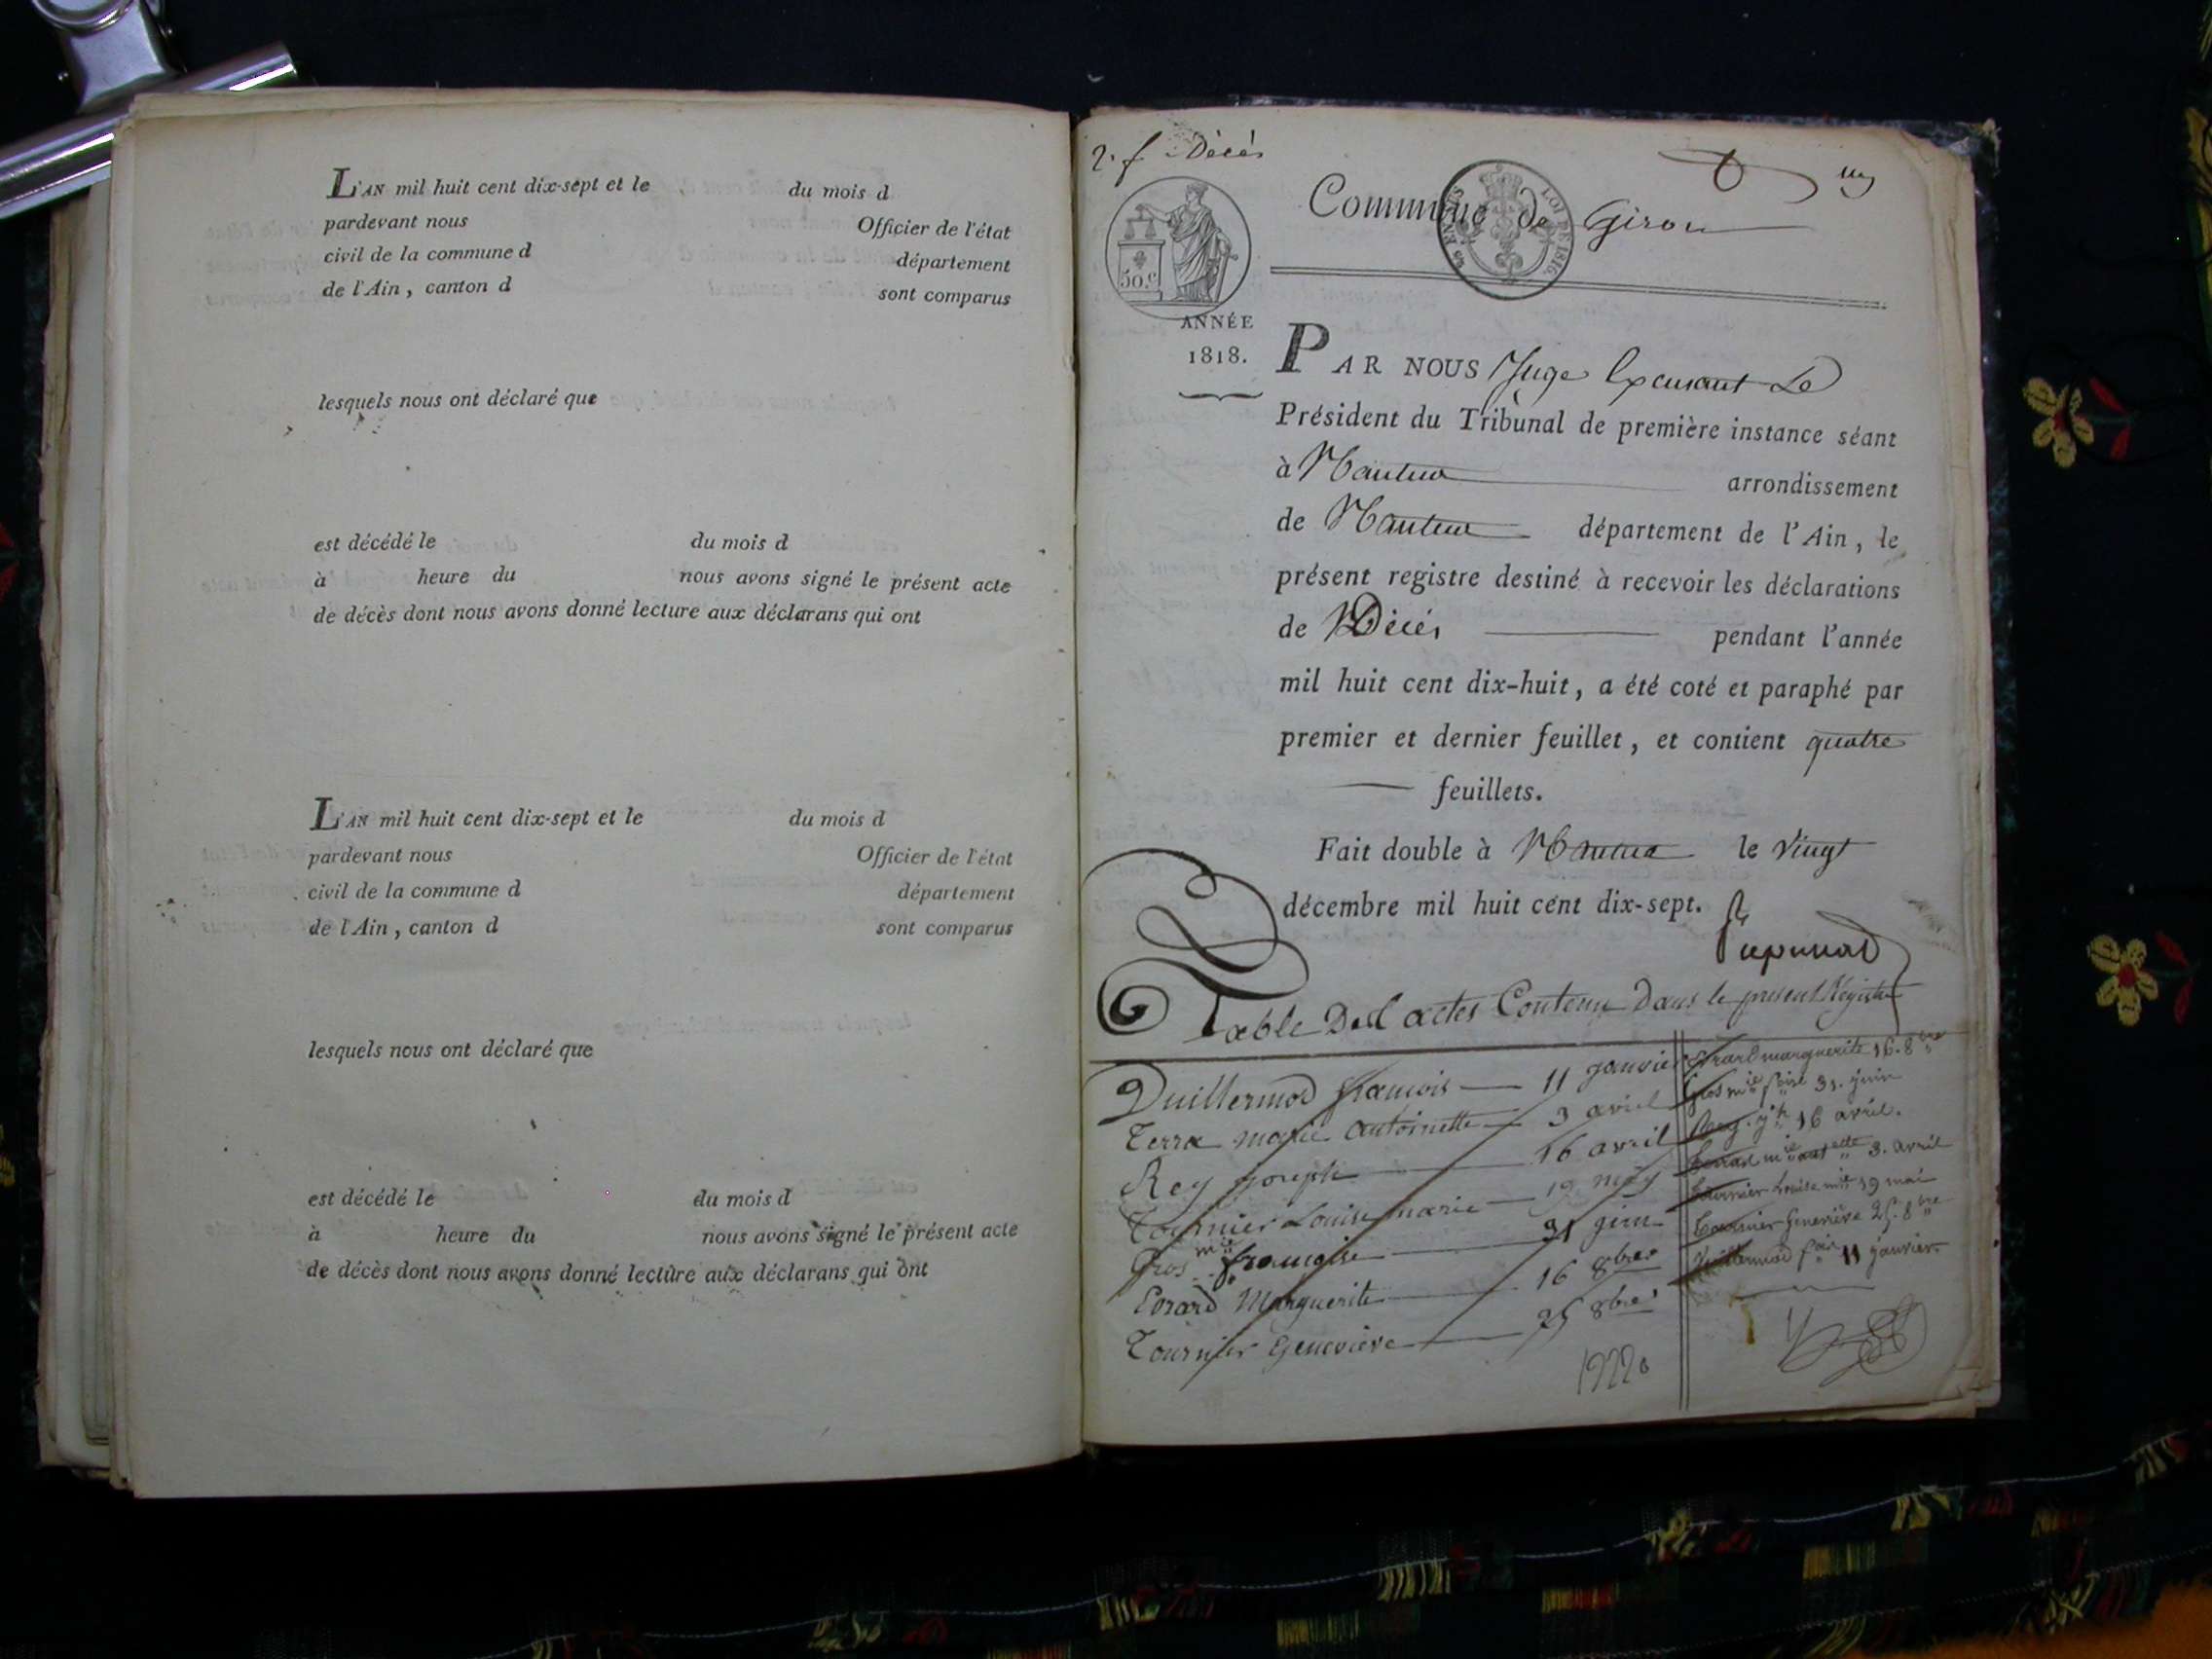 L'AN mil huit cent dix-sept et le du mois d
pardevant nous Officier de l'état
civil de la commune d département
de l'Ain, canton d sont comparus
lesquels nous ont déclaré que
est décédé le du mois d
à heure du nous avons signé le présent acte
de décès dont nous avons donné lecture aux déclarans qui ont
L'AN mil huit cent dix-sept et le du mois d
pardevant nous Officier de l'état
civil de la commune d département
de l'Ain, canton d sont comparus
lesquels nous ont déclaré que
est décédé le du mois d
à heure du nous avons signé le présent acte
de décès dont nous avons donné lecture aux déclarans qui ont
2. f Décès
Commune de Giron
50.c
LOI DE 1816.
ANNÉE
1818.
PAR NOUS Juge Excusant Le
Président du Tribunal de première instance séant
à Nantua arrondissement
de Nantua département de l'Ain, le
présent registre destiné à recevoir les déclarations
de Décès pendant l'année
mil huit cent dix-huit, a été coté et paraphé par
premier et dernier feuillet, et contient quatre
feuillets.
Fait double à Nantua le vingt
décembre mil huit cent dix-sept.
Table Des actes Contenu Dans le present Registre
Vuillermod francois 11 janvier
Terra marie antoinette 3 avril
Rey joseph 16 avril
Tournier Louise marie 19 may
Gros mie francoise 31 juin
Evrard Marguerite 16 8bre
Tournier Genevieve 25 8bre
marguerite 16. 8bre
Gros mie foise 31. juin
Rey jh 16 avril.
3. avril
Tournier Louise mie 19 mai
Tournier Geneviève 25. 8bre
Vuillermod fois 11 janvier.